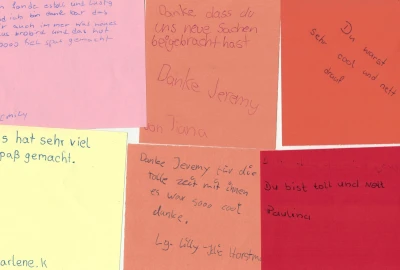 ich
auch immer was neues
und das hat
Spaß gemacht
Emily
Danke dass du
uns neue Sachen
beigebracht hast
Danke Jeremy
von Tiana
Du warst
sehr cool und nett
drauf
s hat sehr viel
paß gemacht.
arlene.K
Danke Jeremy für die
tolle zeit mit ihnen
es war sooo cool
danke.
Lg. Lilly-
Du bist toll und nett
Paulina